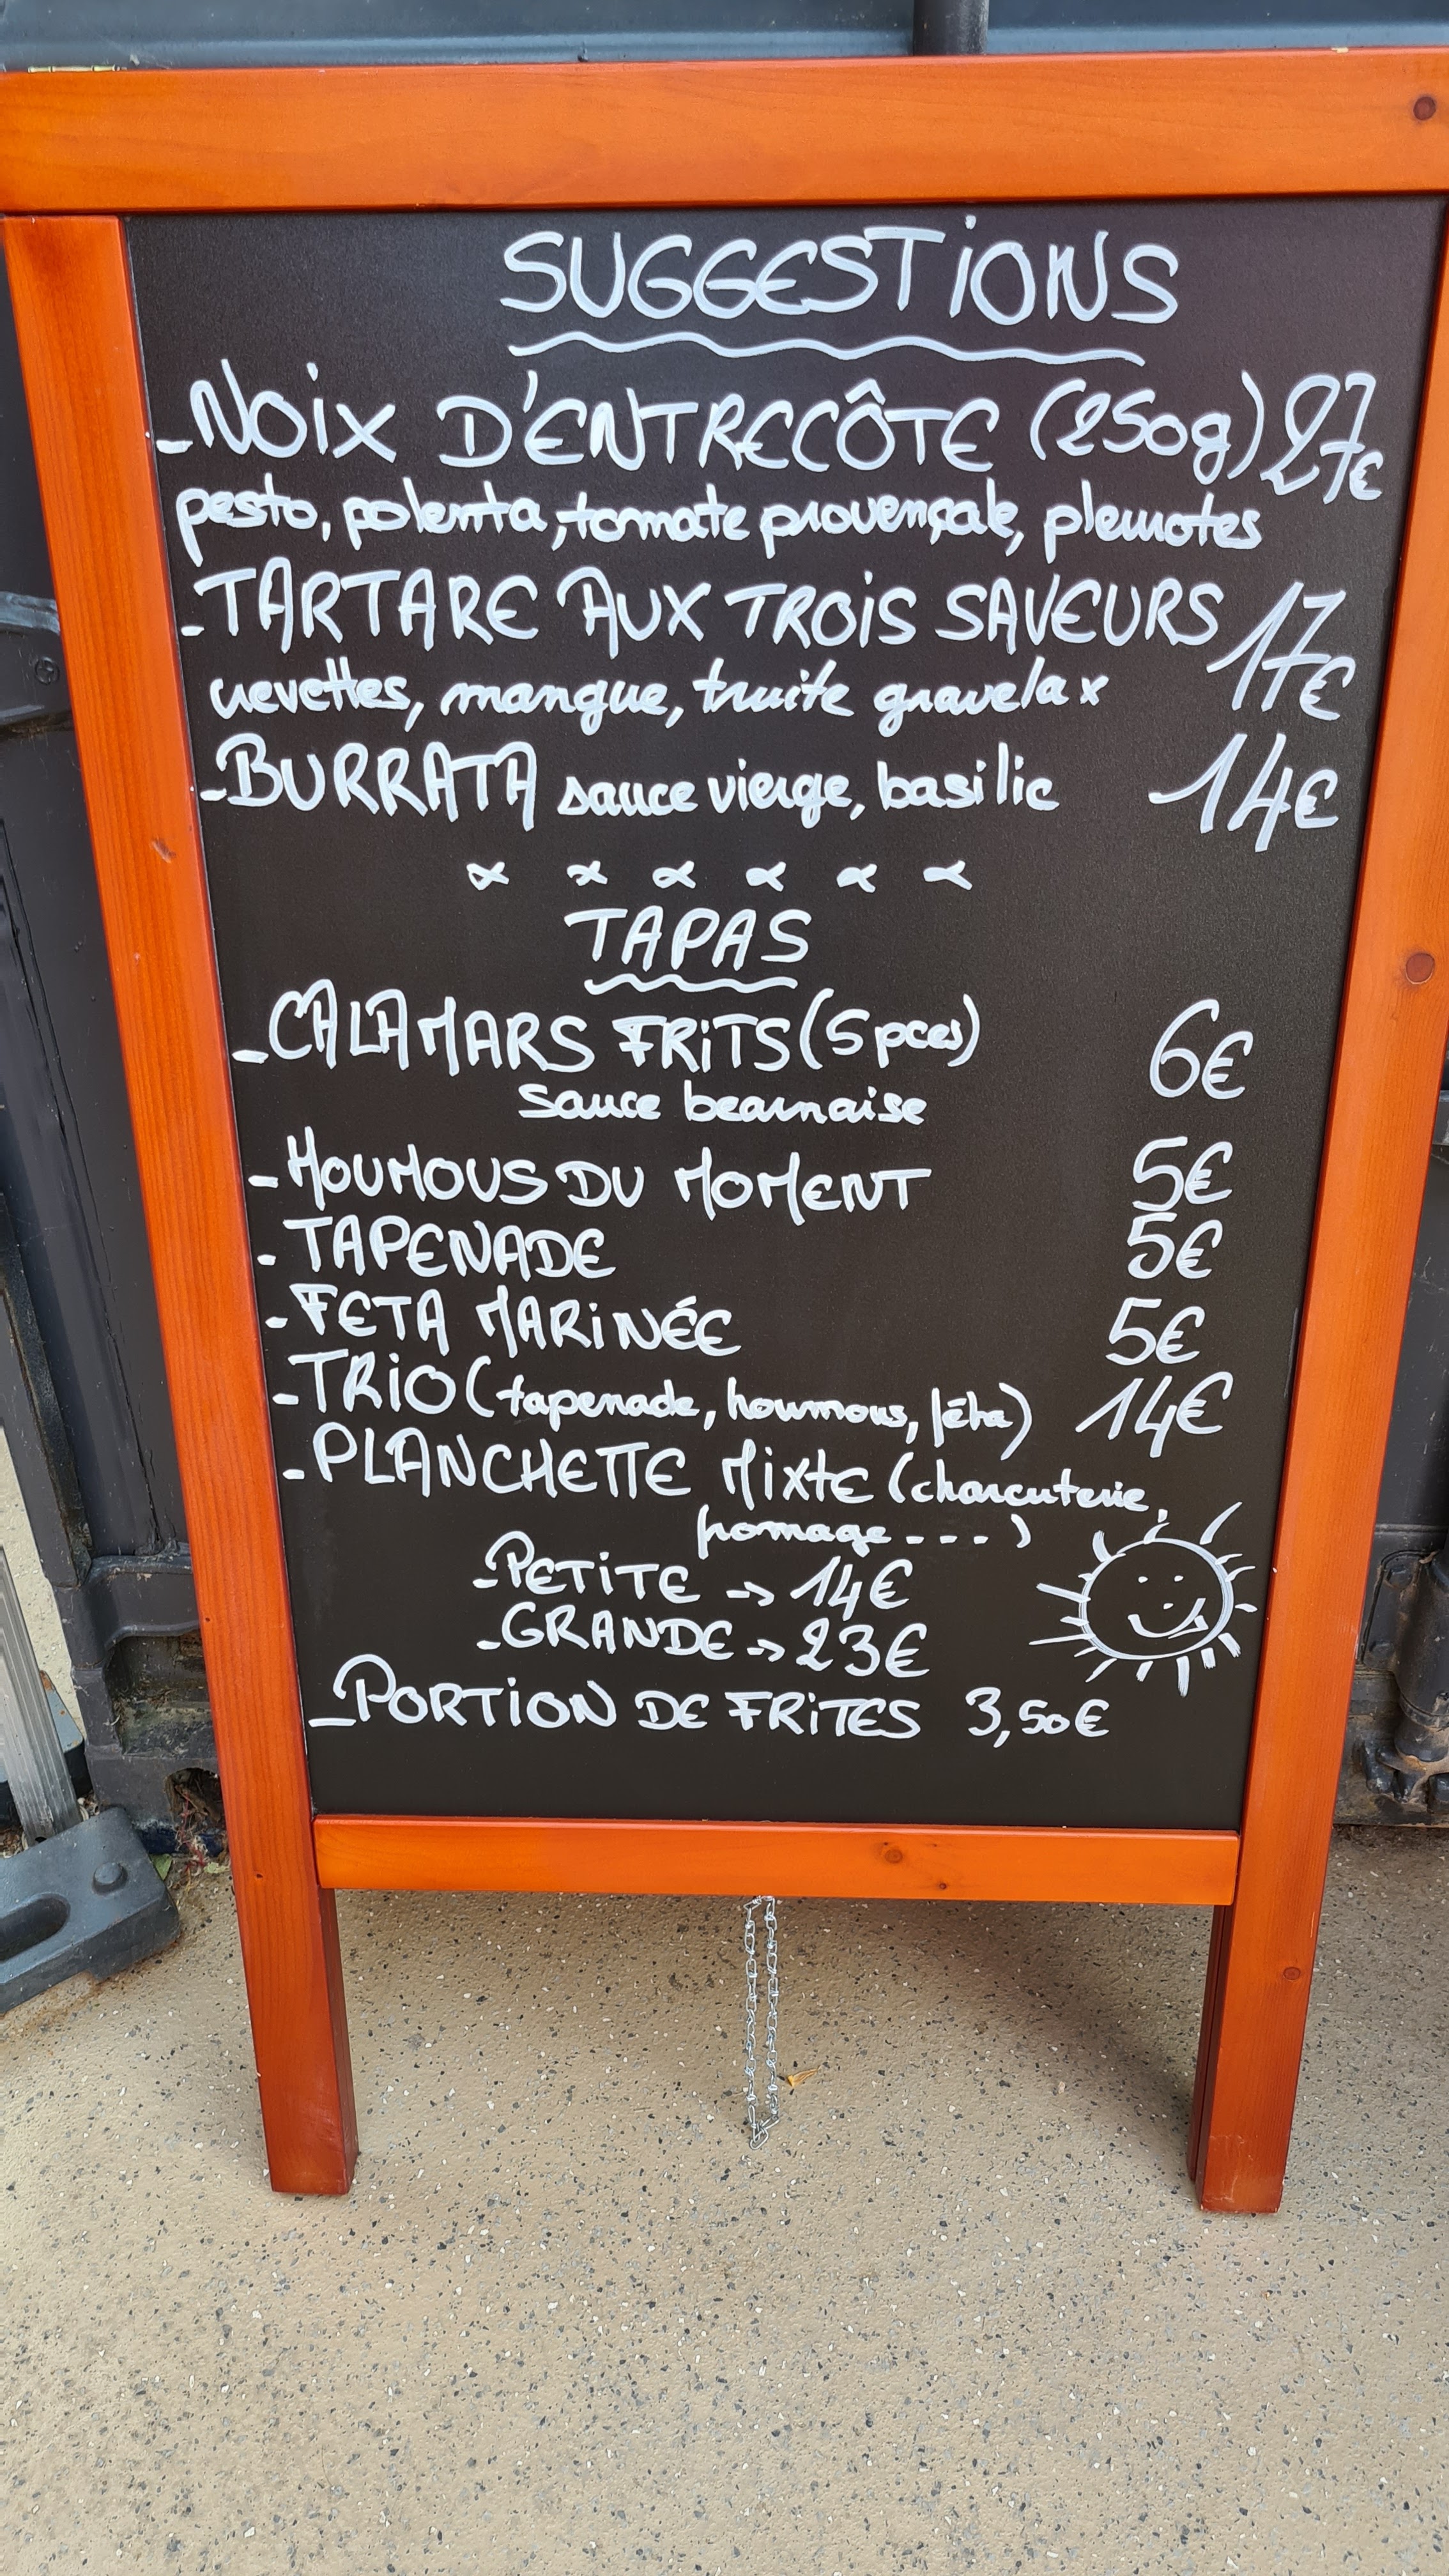 SUGGESTiONS
-NOix D'ENTRECÔTE (250g) 27€
pesto, polenta, tomate provençale, pleurotes
-TARTARE AUX TROiS SAVEURS 17€
crevettes, mangue, truite gravelax
-BURRATA sauce vierge, basilic 14€
TAPAS
-CALAMARS FRiTS (5 pces) 6€
sauce bearnaise
-HOUMOUS DU MOMENT 5€
-TAPENADE 5€
-FETA MARiNÉE 5€
-TRiO (tapenade, houmous, féta) 14€
-PLANCHETTE MixTE (charcuterie,
fromage ---)
-PETiTE -> 14€
-GRANDE -> 23€
-PORTiON DE FRiTES 3,50€